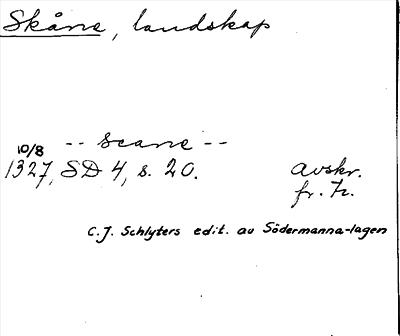 Skåne, landskap
-- scane --
10/8
1327, SD 4, s. 20. avskr.
fr.
C.J. Schlyters edit. av Södermanna-lagen